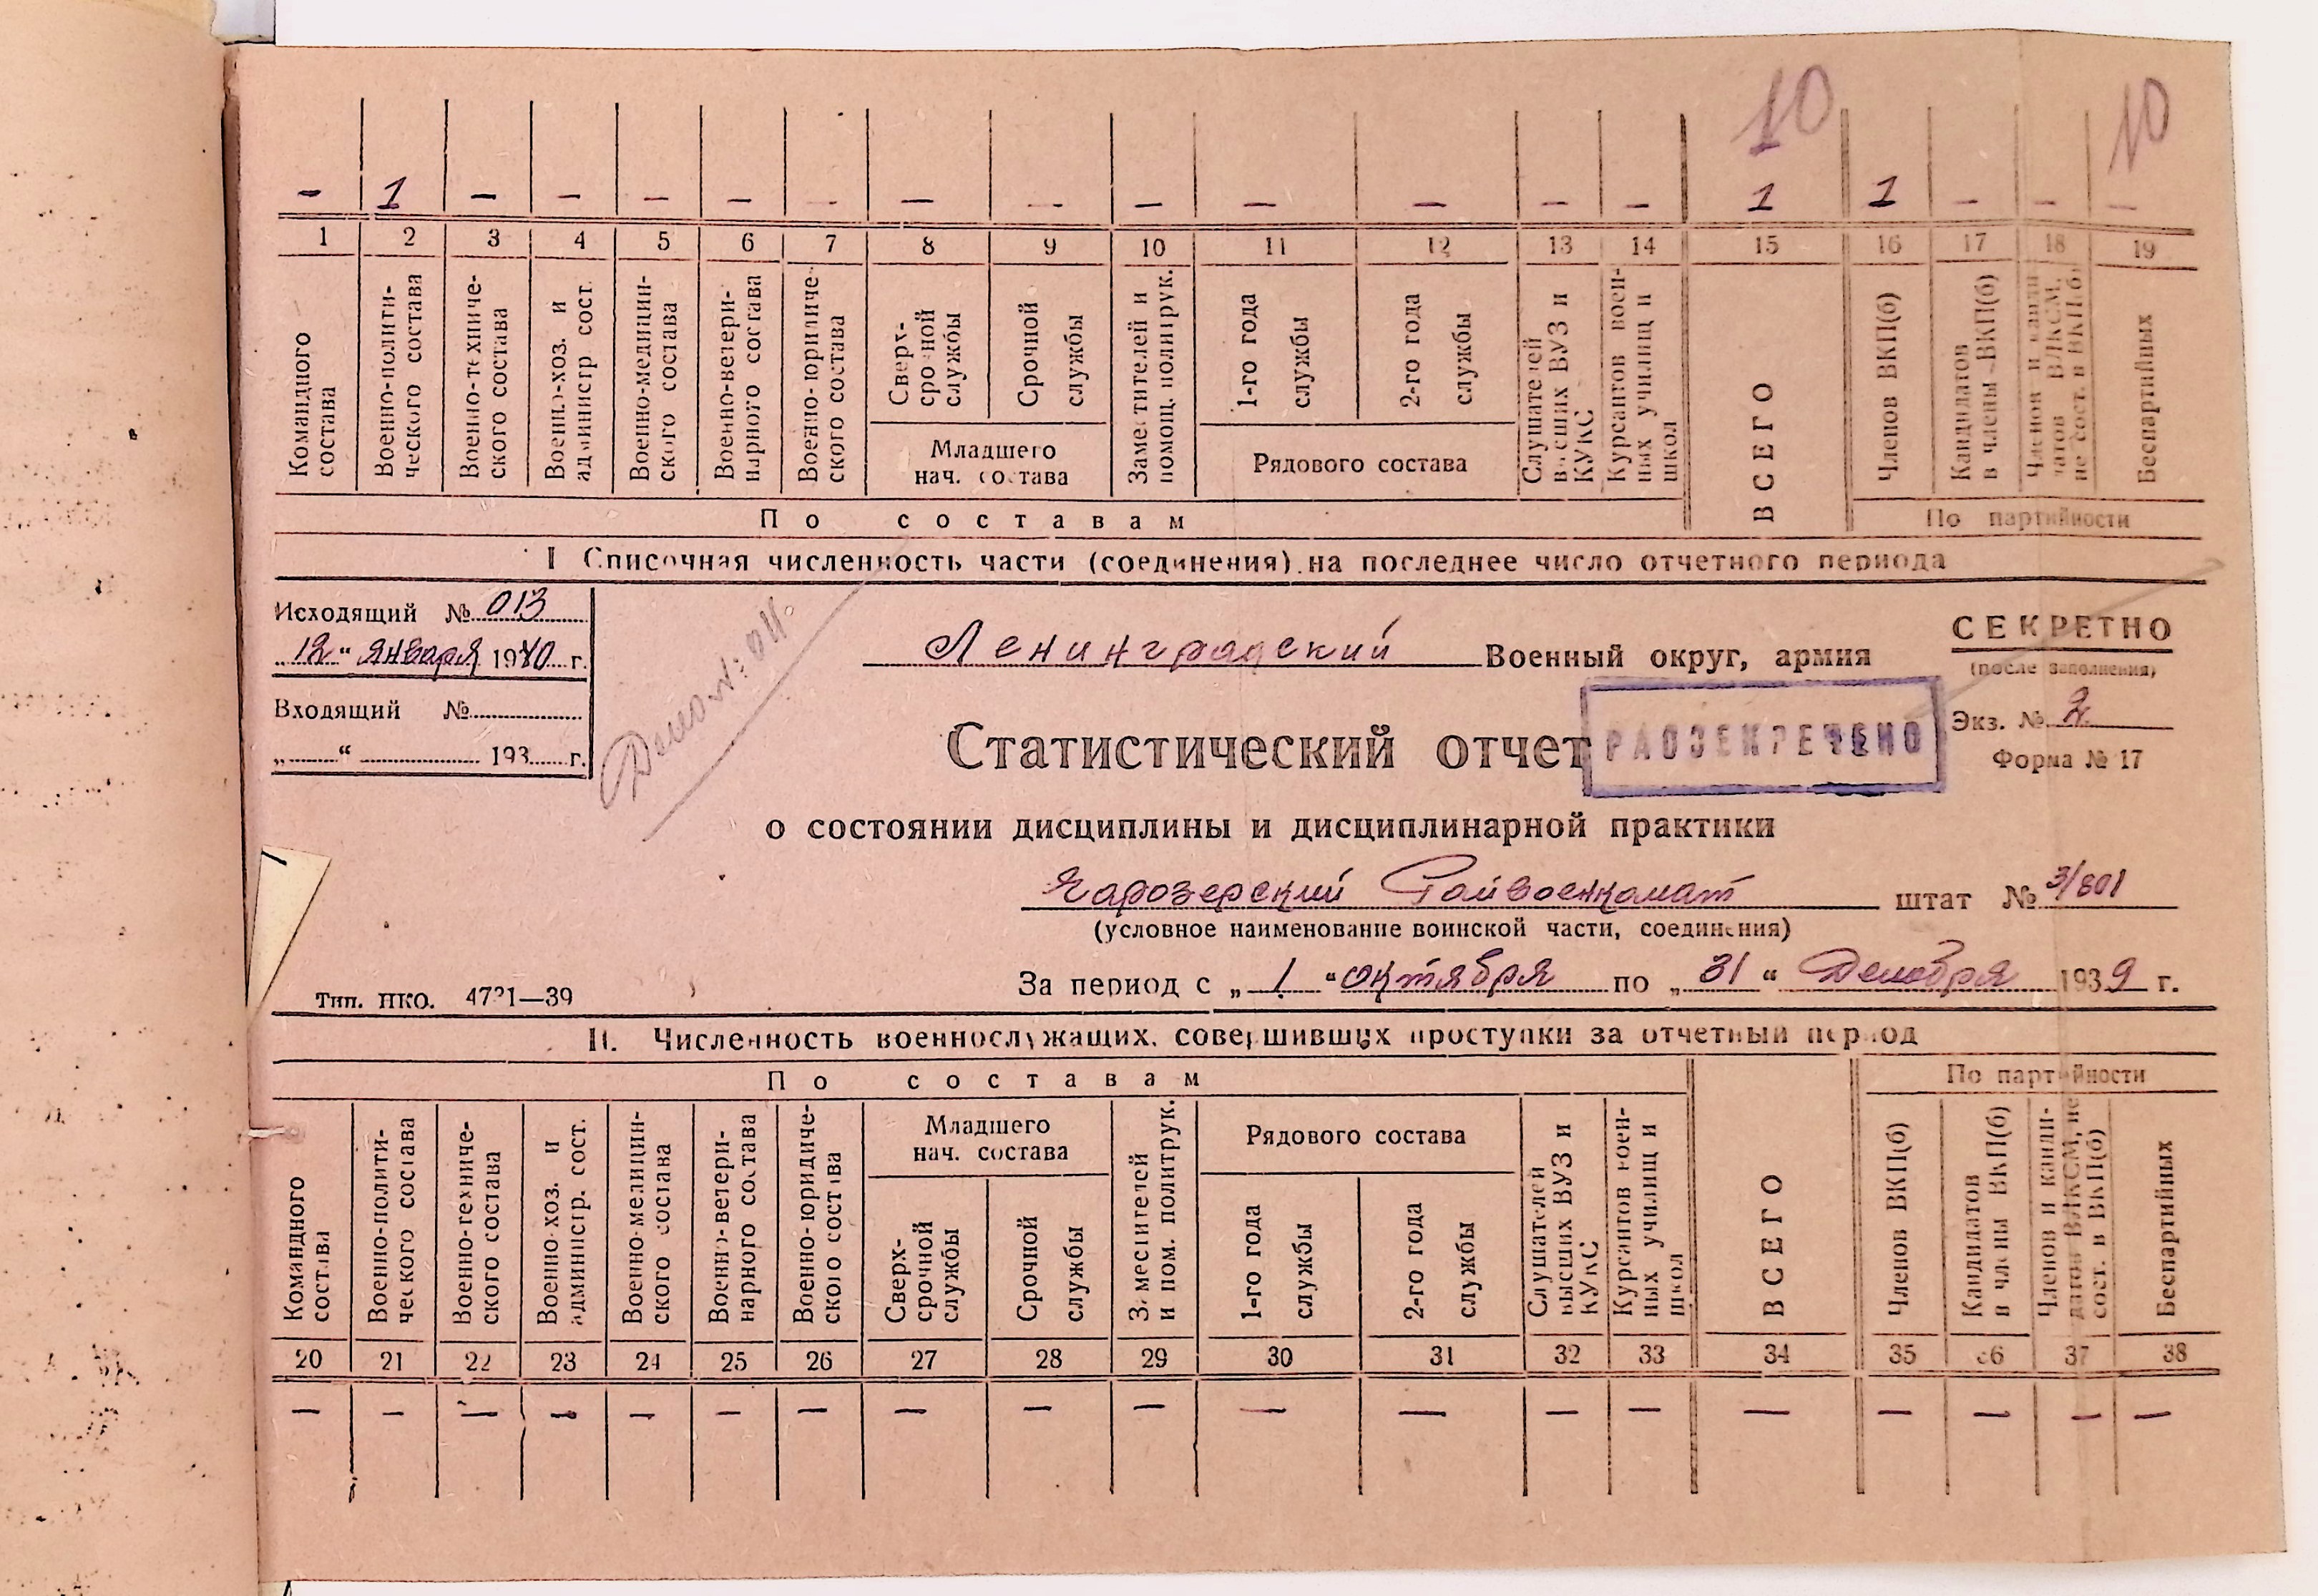 10 10
— 1 — — — — — — — — — — — — 1 1 — — —
1 2 3 4 5 6 7 8 9 10 11 12 13 14 15 16 17 18 19
Командного состава
Военно-полити-
ческого состава
Военно-техниче-
ского состава
Военно-хоз. и
администр сост.
Военно-медицин-
ского состава
Военно-ветери-
нарного состава
Военно-юридиче-
ского состава
Сверх-
срочной
службы
Срочной
службы
Младшего
нач. состава
Заместителей и
помощ. политрук.
1-го года
службы
2-го года
службы
Рядового состава
Слушателей
высших ВУЗ и
КУКС
Курсантов воен-
ных училищ и
школ
ВСЕГО
Членов ВКП(б)
Кандидатов
в члены ВКП(б)
Членов и канди-
датов ВЛКСМ,
не сост. в ВКП(б)
Беспартийных
По составам
По партийности
I Списочная численность части (соединения) на последнее число отчетного периода
Исходящий № 013
„12“ января 1940 г.
Входящий №
„ “ 193 г.
Ленинградский Военный округ, армия
СЕКРЕТНО
(после заполнения)
Экз. № 2
Форма № 17
Статистический отчет
РАССЕКРЕЧЕНО
о состоянии дисциплины и дисциплинарной практики
Чарозерский Райвоенкомат штат № 3/801
(условное наименование воинской части, соединения)
За период с „1“ октября по „31“ Декабря 1939 г.
Тип. НКО. 4721—39
II. Численность военнослужащих, совершивших проступки за отчетный период
По составам
По партийности
Командного
состава
Военно-полити-
ческого состава
Военно-техниче-
ского состава
Военно-хоз. и
администр. сост.
Военно-медицин-
ского состава
Военно-ветери-
нарного состава
Военно-юридиче-
ского состава
Младшего
нач. состава
Сверх-
срочной
службы
Срочной
службы
Заместителей
и пом. политрук.
Рядового состава
1-го года
службы
2-го года
службы
Слушателей
высших ВУЗ и
КУКС
Курсантов воен-
ных училищ и
школ
ВСЕГО
Членов ВКП(б)
Кандидатов
в члены ВКП(б)
Членов и канди-
датов ВЛКСМ, не
сост. в ВКП(б)
Беспартийных
20 21 22 23 24 25 26 27 28 29 30 31 32 33 34 35 36 37 38
— — — — — — — — — — — — — — — — — — —